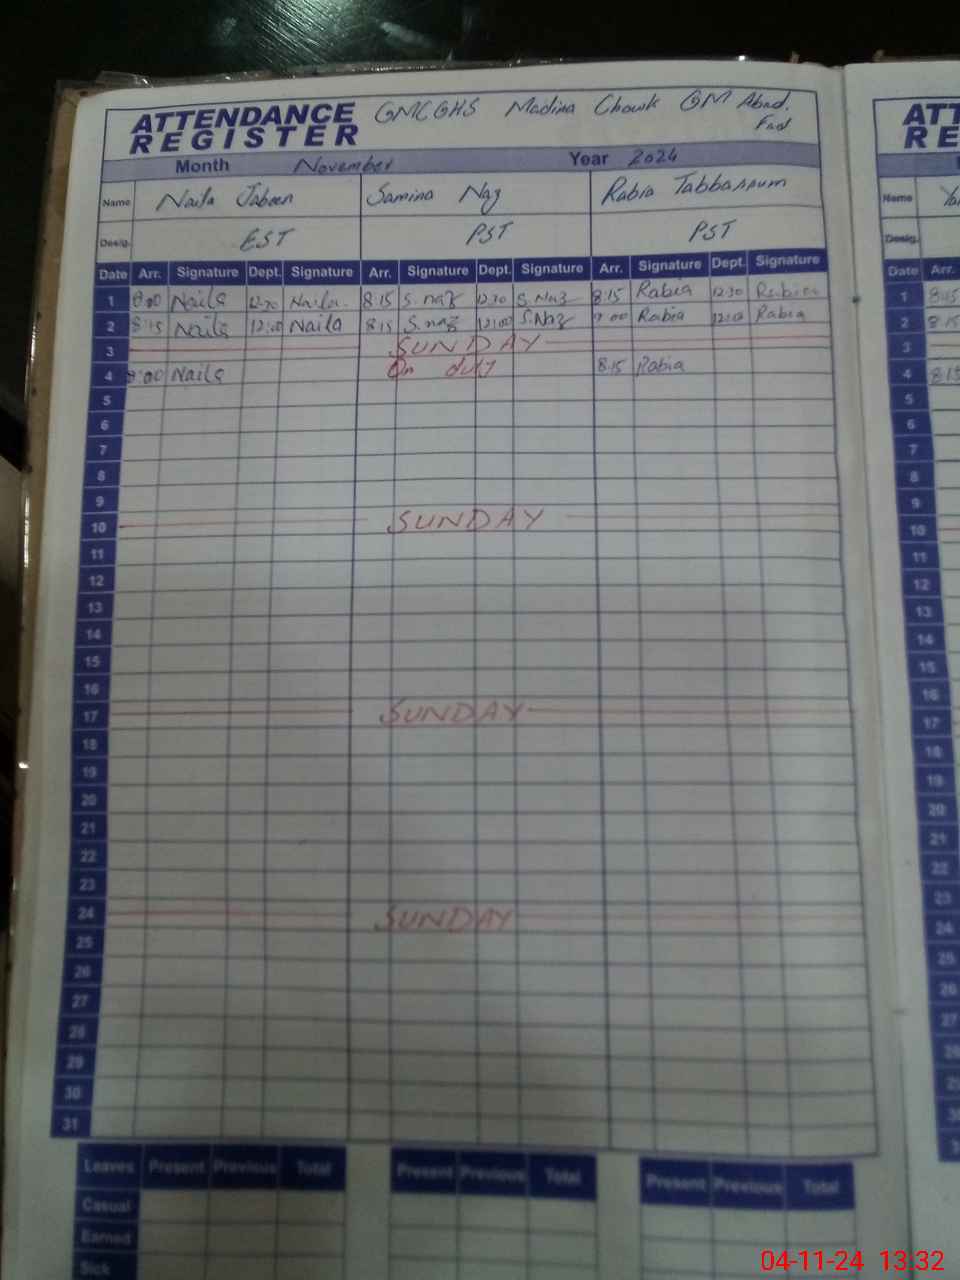 ATTENDANCE REGISTER GMCGHS Madina Chowk GM Abad. Fsd
Month November Year 2024
Name Naila Jabeen Samina Naz Rabia Tabbassum
Desig. EST PST PST
Date Arr. Signature Dept. Signature Arr. Signature Dept. Signature Arr. Signature Dept. Signature
1 8:00 Naila 12:30 Naila 8:15 S.naz 12:30 S.Naz 8:15 Rabia 12:30 Rabia
2 8:15 Naila 12:00 Naila 8:15 S.naz 12:00 S.Naz 00 Rabia 12:00 Rabia
3 SUNDAY
4 8:00 Naila On duty 8:15 Rabia
5
6
7
8
9
10 SUNDAY
11
12
13
14
15
16
17 SUNDAY
18
19
20
21
22
23
24 SUNDAY
25
26
27
28
29
30
31
Leaves Present Previous Total Present Previous Total Present Previous Total
Casual
Earned
Sick
ATT
RE
Name Ya
Desig.
Date Arr.
1 8:15
2 8:15
3
4 8:15
5
6
7
8
9
10
11
12
13
14
15
16
17
18
19
20
21
22
23
24
25
26
27
04-11-24 13:32